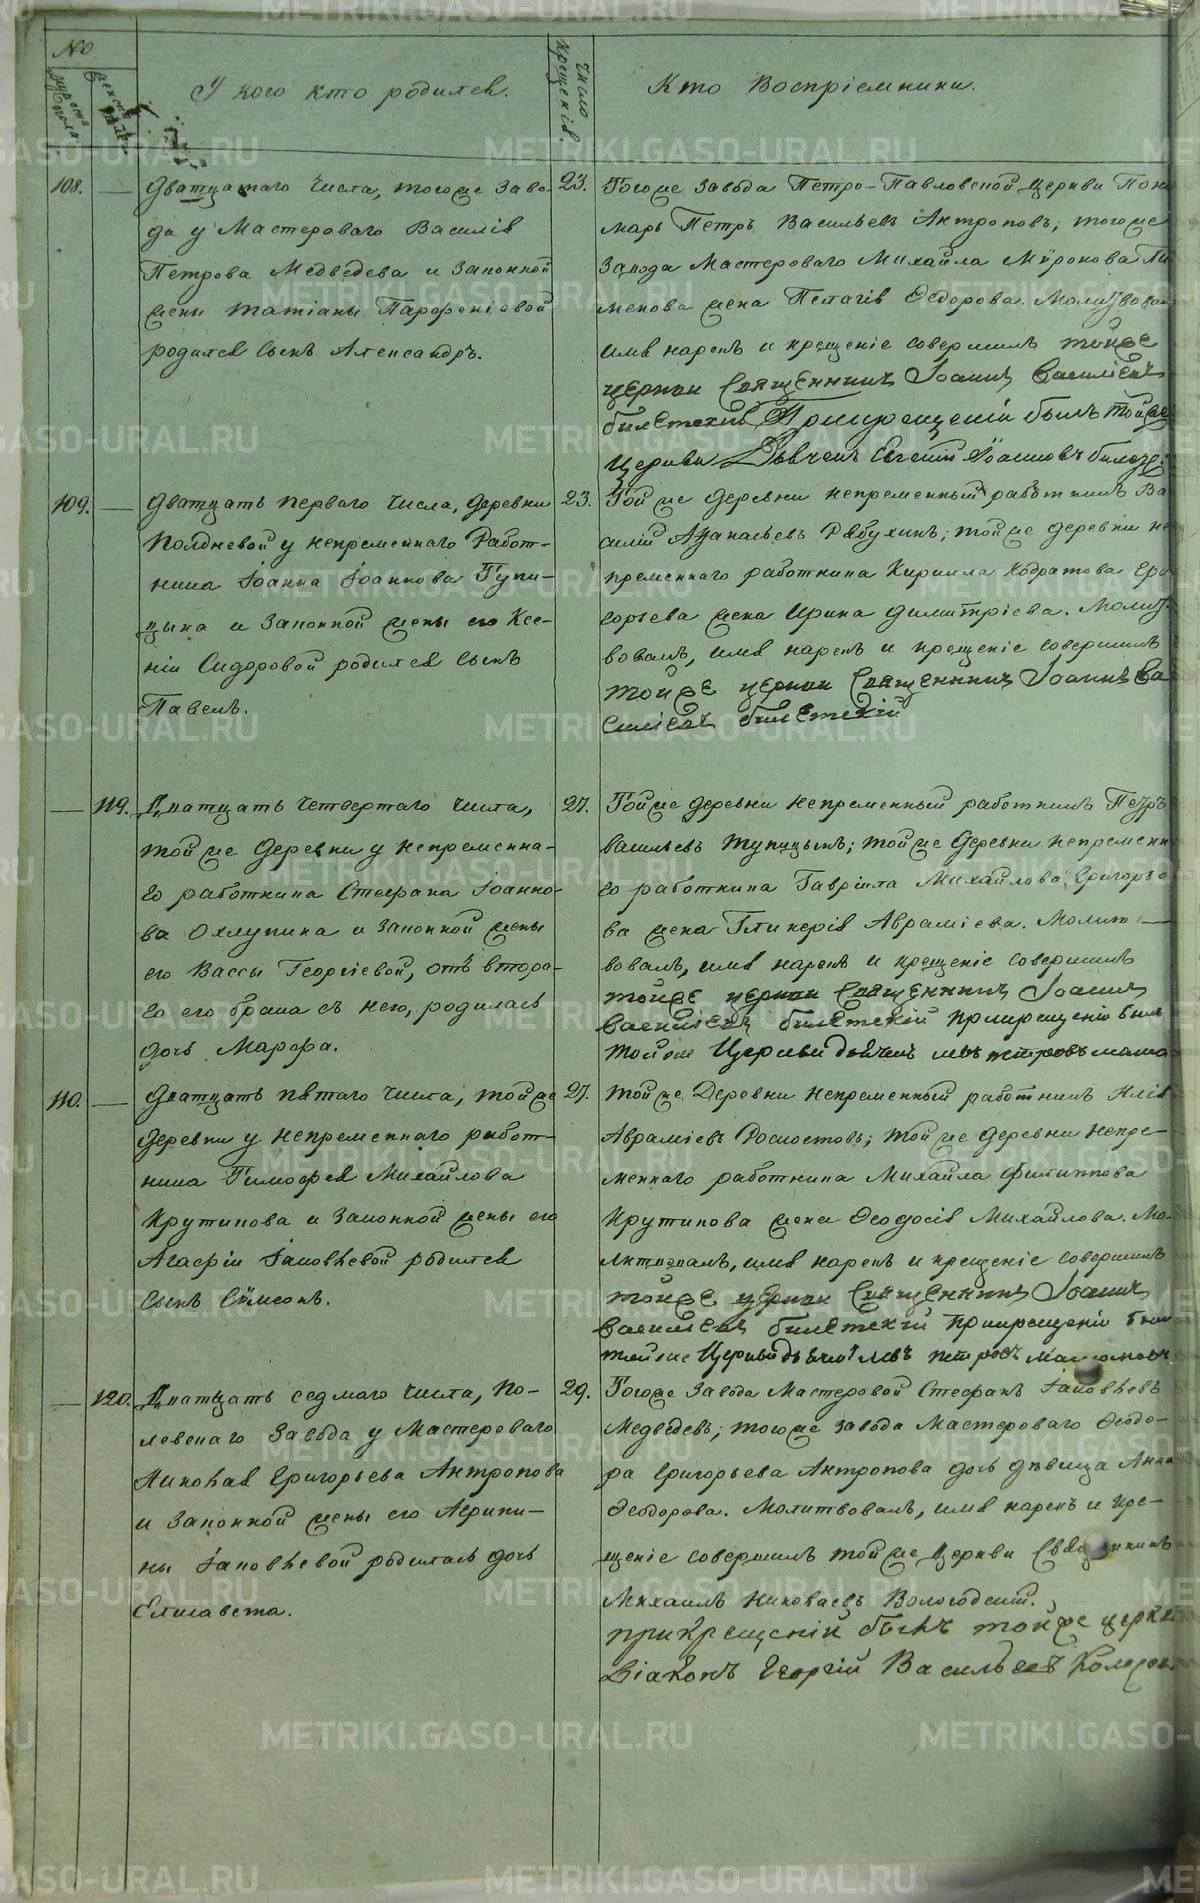 №
мужеска пола
женска
У кого кто родился.
Число крещенія.
Кто Воспріемники.
108.
Дватцатаго числа, тогоже заво-
да у Мастероваго Василія
Петрова Медведева и законной
жены Татіаны Парфеніевой
родился сынъ Александръ.
23.
Тогоже завода Петро-Павловской Церкви Поно
марь Петръ Васильевъ Антроповъ; тогоже
завода Мастероваго Михайла Мѵронова Пи
менова жена Пелагія Ѳедорова. Молитвовал
имя нарекъ и крещеніе совершилъ тойже
церкви Священникъ Іоаннъ Василіевъ
билетскій При крещеніи былъ тойже
Церкви Дьячекъ Евгеній Іоанновъ
109.
Дватцать перваго числа, деревни
Полдневой у непременнаго Работ-
ника Іоанна Іоаннова Тупи-
цына и законной жены его Ксе-
ніи Сидоровой родился сынъ
Павелъ.
23.
Той же деревни непременный работникъ Ва
силій Аѳанасьевъ Рябухинъ; той же деревни не
пременнаго работника Кирилла Кодратова Гри
горьева жена Ирина Димитріева. Молит-
вовалъ, имя нарекъ и крещеніе совершилъ
тойже церкви Священникъ Іоаннъ Ва
силіевъ билетскій
119.
Дватцать четвертаго числа,
той же деревни у непременна-
го работника Стефана Іоанно-
ва Охлупина и законной жены
его Вассы Георгіевой, отъ втора-
го его брака съ нею, родилась
дочь Марфа.
27.
Тойже деревни непременный работникъ Петръ
Васильевъ Тупицынъ; тойже деревни непременн
го работника Гавріила Михайлова Григорье
ва жена Гликерія Авраміева. Молит-
вовалъ, имя нарекъ и крещеніе совершилъ
тойже церкви Священникъ Іоаннъ
Василіевъ билетскій При крещеніи былъ
тойже Церкви дьячекъ левъ петровъ
110.
Дватцать пятаго числа, тойже
деревни у непременнаго работ-
ника Тимофея Михайлова
Крутикова и законной жены его
Агафіи Іаковлевой родился
сынъ Сѵмеонъ.
27.
Тойже Деревни непременный работникъ Илія
Авраміевъ; той же деревни непре-
меннаго работника Михайла Филиппова
Крутикова жена Ѳеодосія Михайлова. Мо-
литвовалъ, имя нарекъ и крещеніе совершилъ
тойже церкви Священникъ Іоаннъ
Василіевъ билетскій При крещеніи был
тойже Церкви дьячекъ левъ петровъ
120.
Дватцать седмаго числа, По-
левскаго Завода у Мастероваго
Николая Григорьева Антропова
и законной жены его Агрипи-
ны Іаковлевой родилась дочь
Елисавета.
29.
Тогоже завода Мастеровой Стефанъ Іаковлевъ
Медведевъ; тогоже завода Мастероваго Ѳеодо-
ра Григорьева Антропова дочь девица Анна
Ѳеодорова. Молитвовалъ, имя нарекъ и кре-
щеніе совершилъ той же Церкви Священникъ
Михаилъ Николаевъ Вологодский.
при крещеніи былъ тойже церкви
Діаконъ Георгій Васильевъ